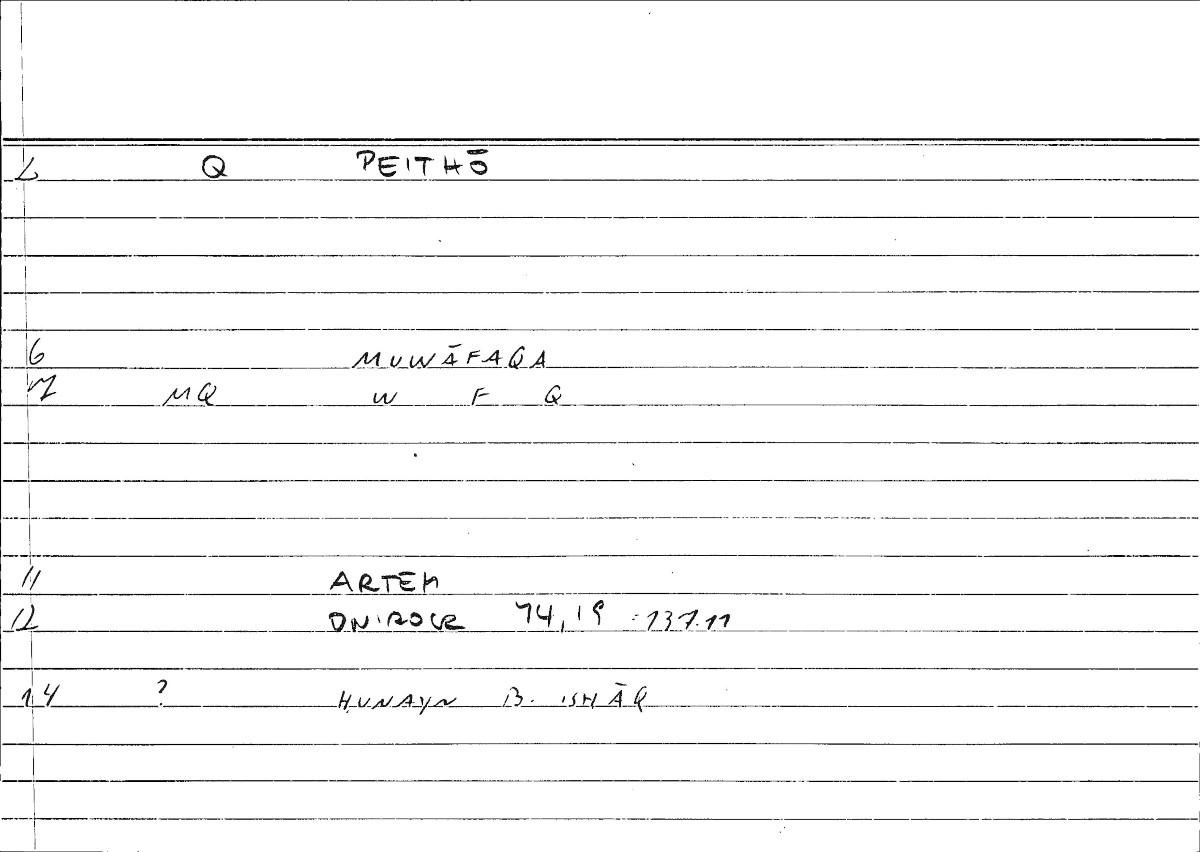 2 Q PEITHŌ
6 MUWĀFAQA
7 MQ W F Q
11 ARTEM
12 ONIROCR 74,19 : 137.11
14 ? ḤUNAYN B. ISḤĀQ